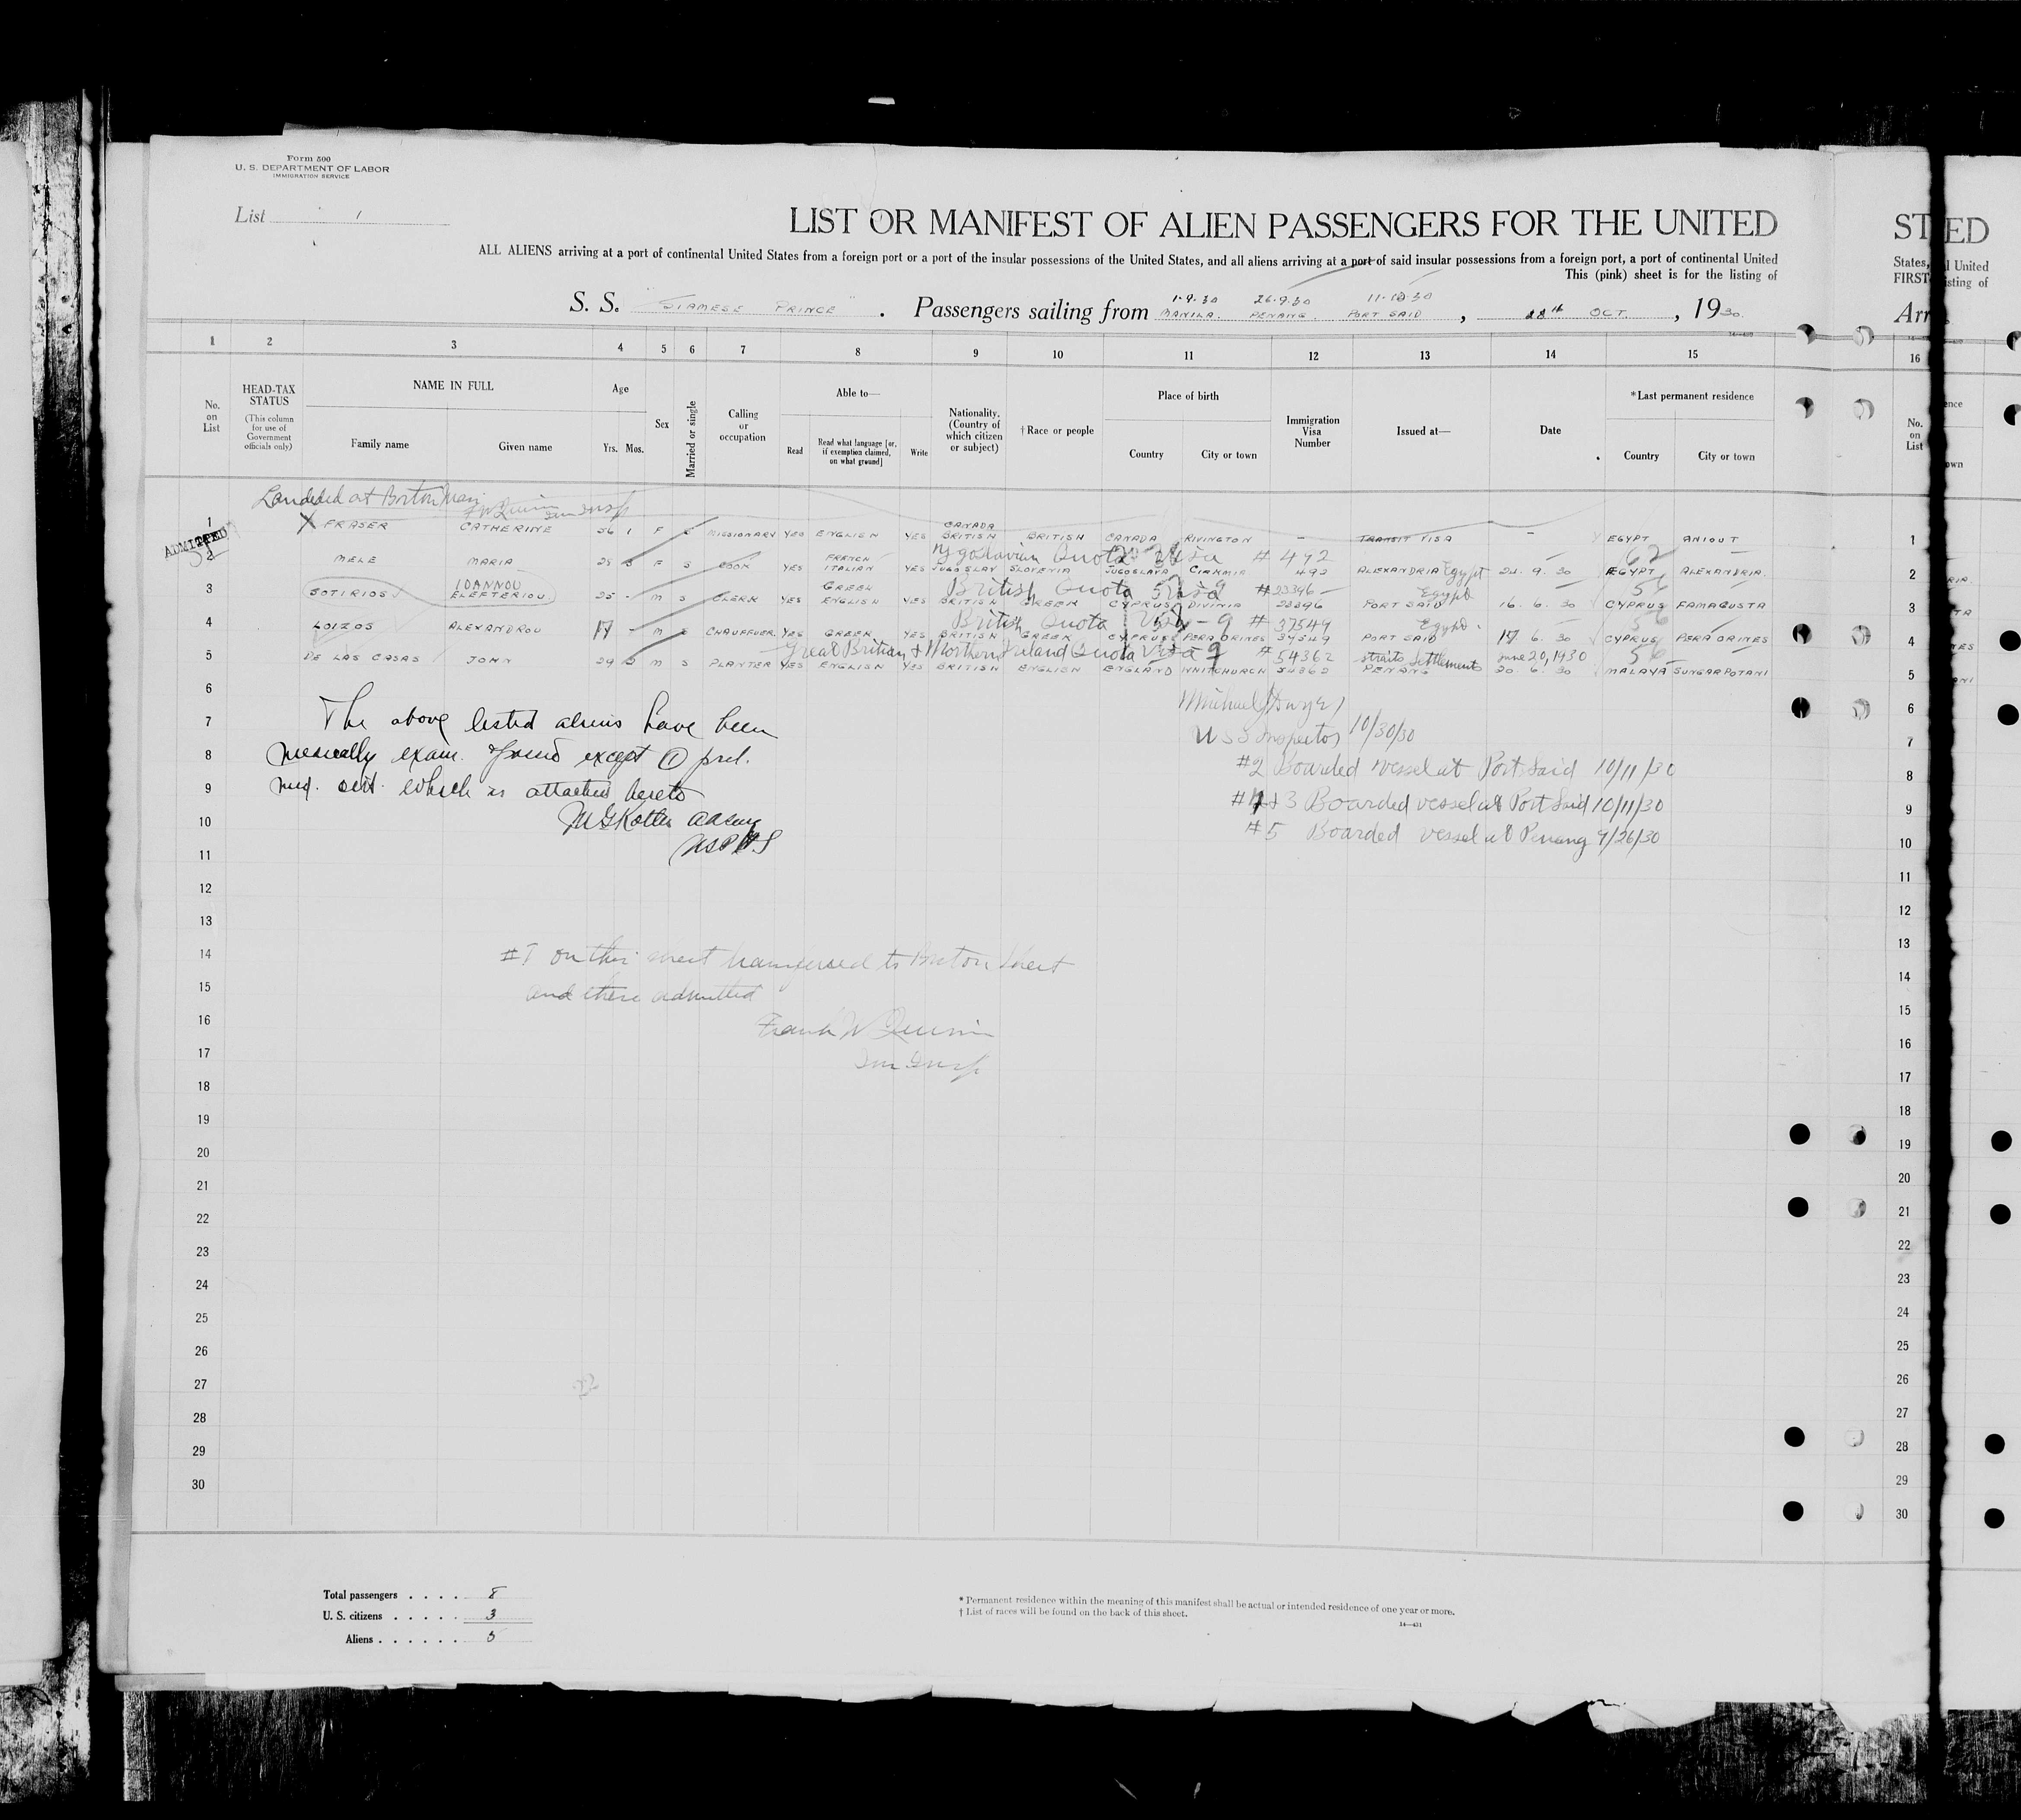 Form 500
U. S. DEPARTMENT OF LABOR
IMMIGRATION SERVICE
List 1
LIST OR MANIFEST OF ALIEN PASSENGERS FOR THE UNITED
ALL ALIENS arriving at a port of continental United States from a foreign port or a port of the insular possessions of the United States, and all aliens arriving at a port of said insular possessions from a foreign port, a port of continental United
This (pink) sheet is for the listing of
1.9.30 26.9.30 11-10-30
S. S. "SIAMESE PRINCE". Passengers sailing from MANILA. PENANG. PORT SAID, 28th OCT., 1930.
1 2 3 4 5 6 7 8 9 10 11 12 13 14 15
No. on List
HEAD-TAX STATUS
(This column for use of Government officials only)
NAME IN FULL
Family name Given name
Age
Yrs. Mos.
Sex
Married or single
Calling or occupation
Able to—
Read
Read what language [or, if exemption claimed, on what ground]
Write
Nationality. (Country of which citizen or subject)
† Race or people
Place of birth
Country City or town
Immigration Visa Number
Issued at—
Date
*Last permanent residence
Country City or town
Landed at Boston Mass
ADMITTED
CANADA
1 X FRASER CATHERINE 56 1 F S MISSIONARY YES ENGLISH YES BRITISH BRITISH CANADA RIVINGTON – TRANSIT VISA – EGYPT
Quota Visa # 492
FRENCH
2 MELE MARIA 25 F S COOK YES ITALIAN YES JUGOSLAV SLOVENIA JUGOSLAVIA 492 ALEXANDRIA Egypt 24. 9. 30 EGYPT ALEXANDRIA.
British Quota Visa #23396
GREEK Egypt
3 SOTIRIOS IOANNOU ELEFTERIOU 25 - M S CLERK YES ENGLISH YES BRITISH GREEK CYPRUS DIVINIA 23396 PORT SAID 16. 6. 30 CYPRUS FAMAGUSTA
British Quota Visa – 9 # 37549 Egypt
4 LOIZOS ALEXANDROU 17 - M S CHAUFFUER YES GREEK YES BRITISH GREEK CYPRUS PERA ORINES 37549 PORT SAID 17. 6. 30 CYPRUS PERA ORINES
Great Britian & Northern Ireland Quota Visa 9 # 54362 Straits Settlements June 20, 1930
5 DE LAS CASAS JOHN 29 M S PLANTER YES ENGLISH YES BRITISH ENGLISH ENGLAND WHITCHURCH 54362 PENANG 20. 6. 30 MALAYA SUNGAR POTANI
6
7 The above listed aliens have been
8 medically exam. & found except ① prel.
9 med. cert. which is attached hereto
10
11 USPHS
Michael J Dwyer
U S Inspector 10/30/30
#2 Boarded vessel at Port Said 10/11/30
#4 & 3 Boarded vessel at Port Said 10/11/30
#5 Boarded vessel at Penang 9/26/30
12
13
14 #1 on this sheet transferred to Boston sheet
15 and there admitted
16 Frank W Quinn
17 Im Insp
18
19
20
21
22
23
24
25
26
27
28
29
30
Total passengers . . . . 8
U. S. citizens . . . . . 3
Aliens . . . . . . 5
* Permanent residence within the meaning of this manifest shall be actual or intended residence of one year or more.
† List of races will be found on the back of this sheet.
14—431
ST
States,
FIRST
Arr
16
No. on List
1
2
3
4
5
6
7
8
9
10
11
12
13
14
15
16
17
18
19
20
21
22
23
24
25
26
27
28
29
30
ED
l United
isting of